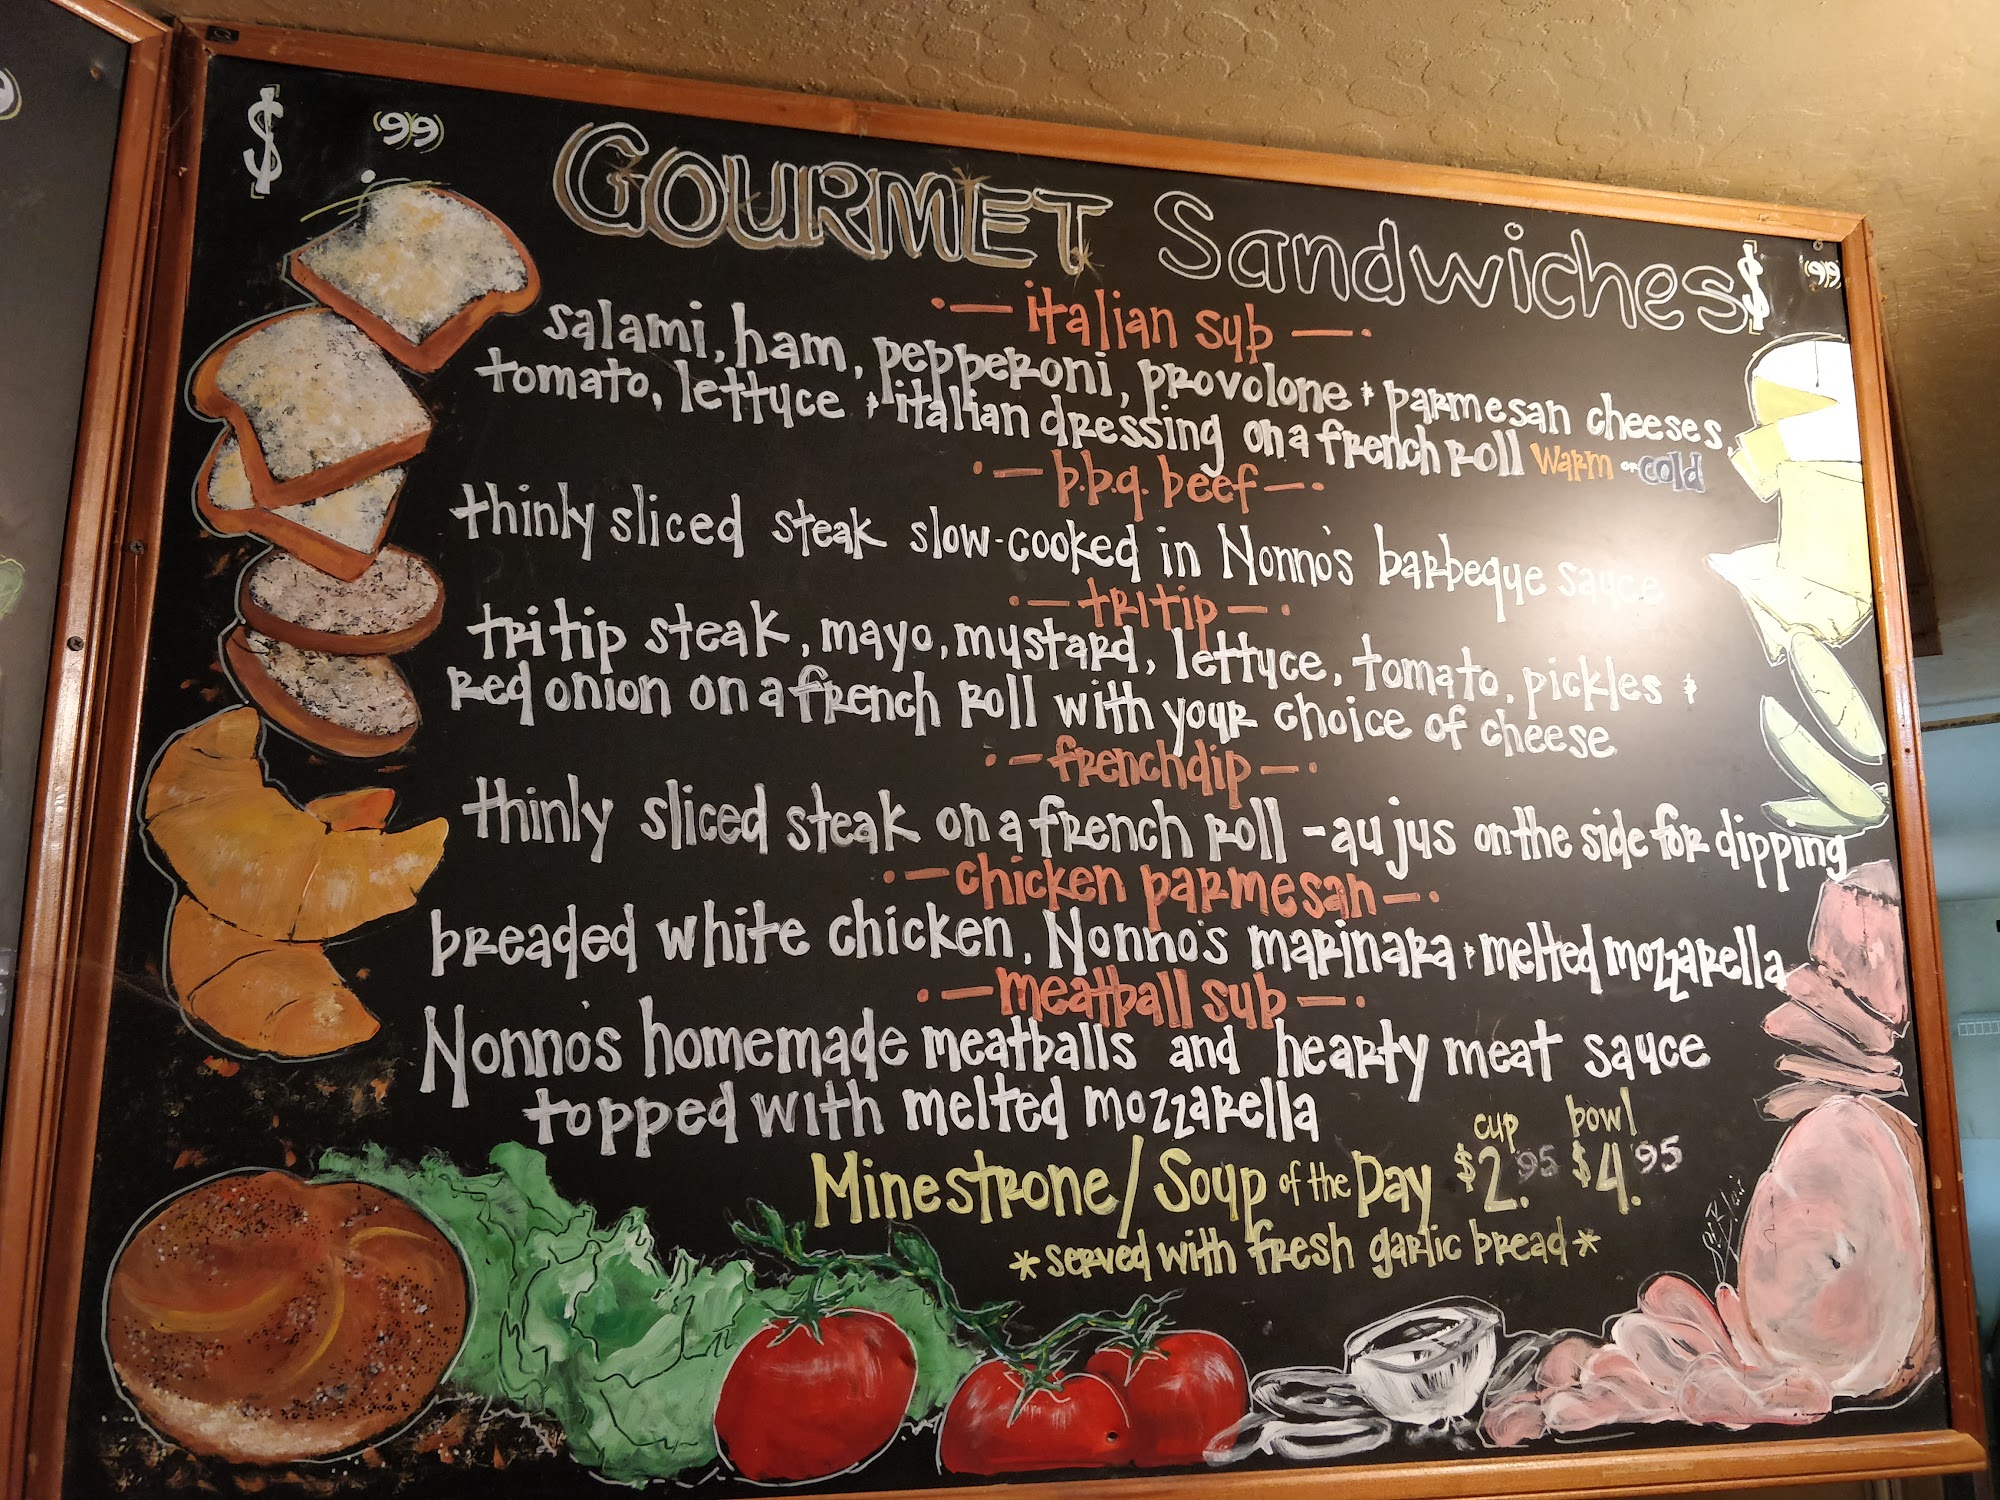 $ .99
GOURMET Sandwiches $ 99
·— italian sub —·
salami, ham, pepperoni, provolone & parmesan cheeses,
tomato, lettuce & italian dressing on a french roll warm or cold
·— b.b.q. beef —·
thinly sliced steak slow-cooked in Nonno's barbeque sauce
·— tri tip —·
tri tip steak, mayo, mustard, lettuce, tomato, pickles &
red onion on a french roll with your choice of cheese
·— french dip —·
thinly sliced steak on a french roll - au jus on the side for dipping
·— chicken parmesan —·
breaded white chicken, Nonno's marinara & melted mozzarella
·— meatball sub —·
Nonno's homemade meatballs and hearty meat sauce
topped with melted mozzarella
cup bowl
Minestrone/Soup of the Day $2.95 $4.95
*served with fresh garlic bread*